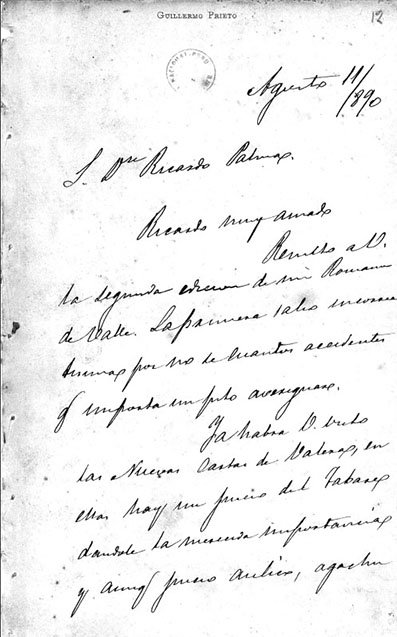 GUILLERMO PRIETO
12
Agosto 11/
/890
S. Dn Ricardo Palma.
Ricardo muy amado
Remito a V.
la segunda edicion de mi Romance
de Valle. La primera salio incorrec
tisima por no se cuantos accidentes
q importa un pito averiguar.
Ya habra V. visto
las Nuevas Cartas de Valera, en
ellas hay un juicio del Tabaré
dandole la merecida importancia
y aunq juicio critico,